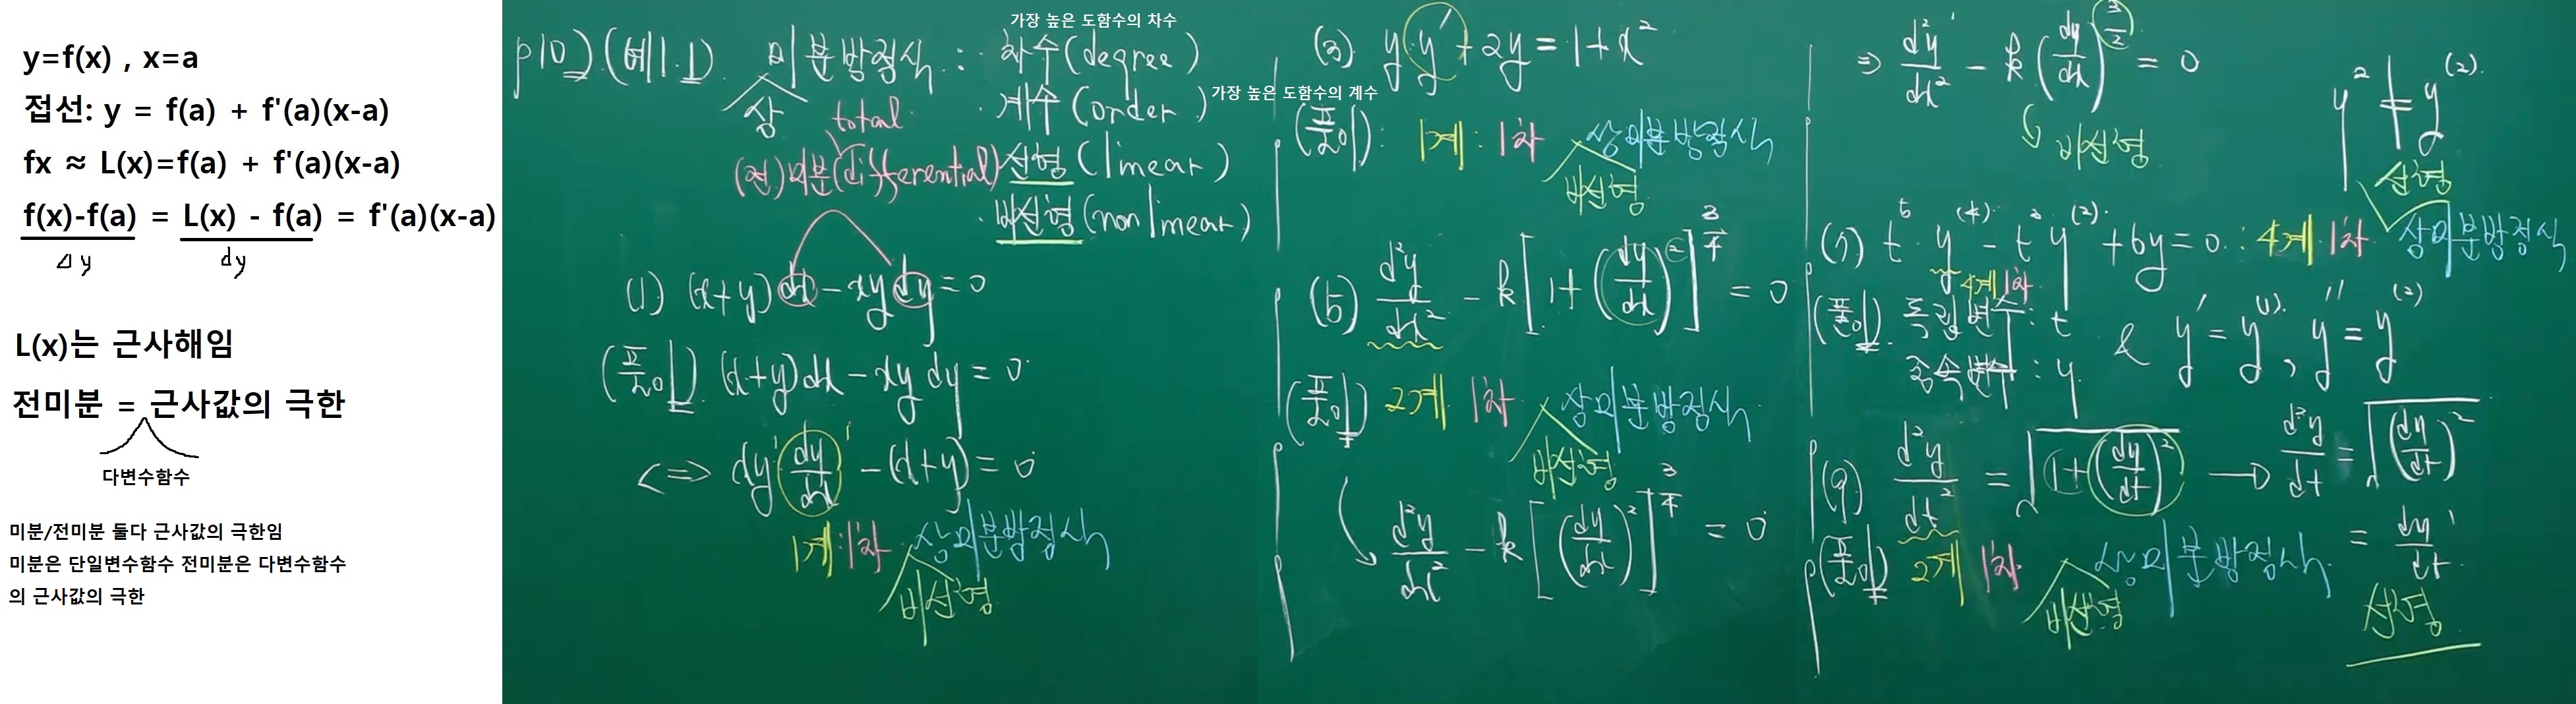 y=f(x) , x=a
접선: y = f(a) + f'(a)(x-a)
fx ≈ L(x)=f(a) + f'(a)(x-a)
f(x)-f(a) = L(x) - f(a) = f'(a)(x-a)
⊿y dy
L(x)는 근사해임
전미분 = 근사값의 극한
다변수함수
미분/전미분 둘다 근사값의 극한임
미분은 단일변수함수 전미분은 다변수함수
의 근사값의 극한
가장 높은 도함수의 차수
p10) (예1.1) 미분방정식 : 차수(degree)
상
· 계수(order) 가장 높은 도함수의 계수
total
(전)미분(differential) · 선형(linear)
· 비선형(nonlinear)
(1) (x+y)dx - xydy = 0
(풀이) (x+y)dx - xydy = 0
⇔ xy dy/dx - (x+y) = 0
1계 1차 상미분방정식
비선형
(3) yy' + 2y = 1 + x²
(풀이): 1계 : 1차 상미분방정식
비선형
(5) d²y/dx² - k[1+(dy/dx)²]^(3/4) = 0
(풀이) 2계 1차 상미분방정식
비선형
d²y/dx² - k[(dy/dx)²]^(3/4) = 0
⇒ d²y/dx² - k(dy/dx)^(3/2) = 0
비선형
y² ≠ y^(2)
선형
(7) t⁵y^(4) - t³y^(2) + 6y = 0 : 4계 1차 상미분방정식
4계 1차
(풀이) 독립변수 : t & y' = y^(1), y'' = y^(2)
종속변수 : y
(9) d²y/dt² = √(1+(dy/dt)²) → d²y/dt = √((dy/dt)²)
= dy/dt
(풀이) 2계 1차 상미분방정식
비선형
선형